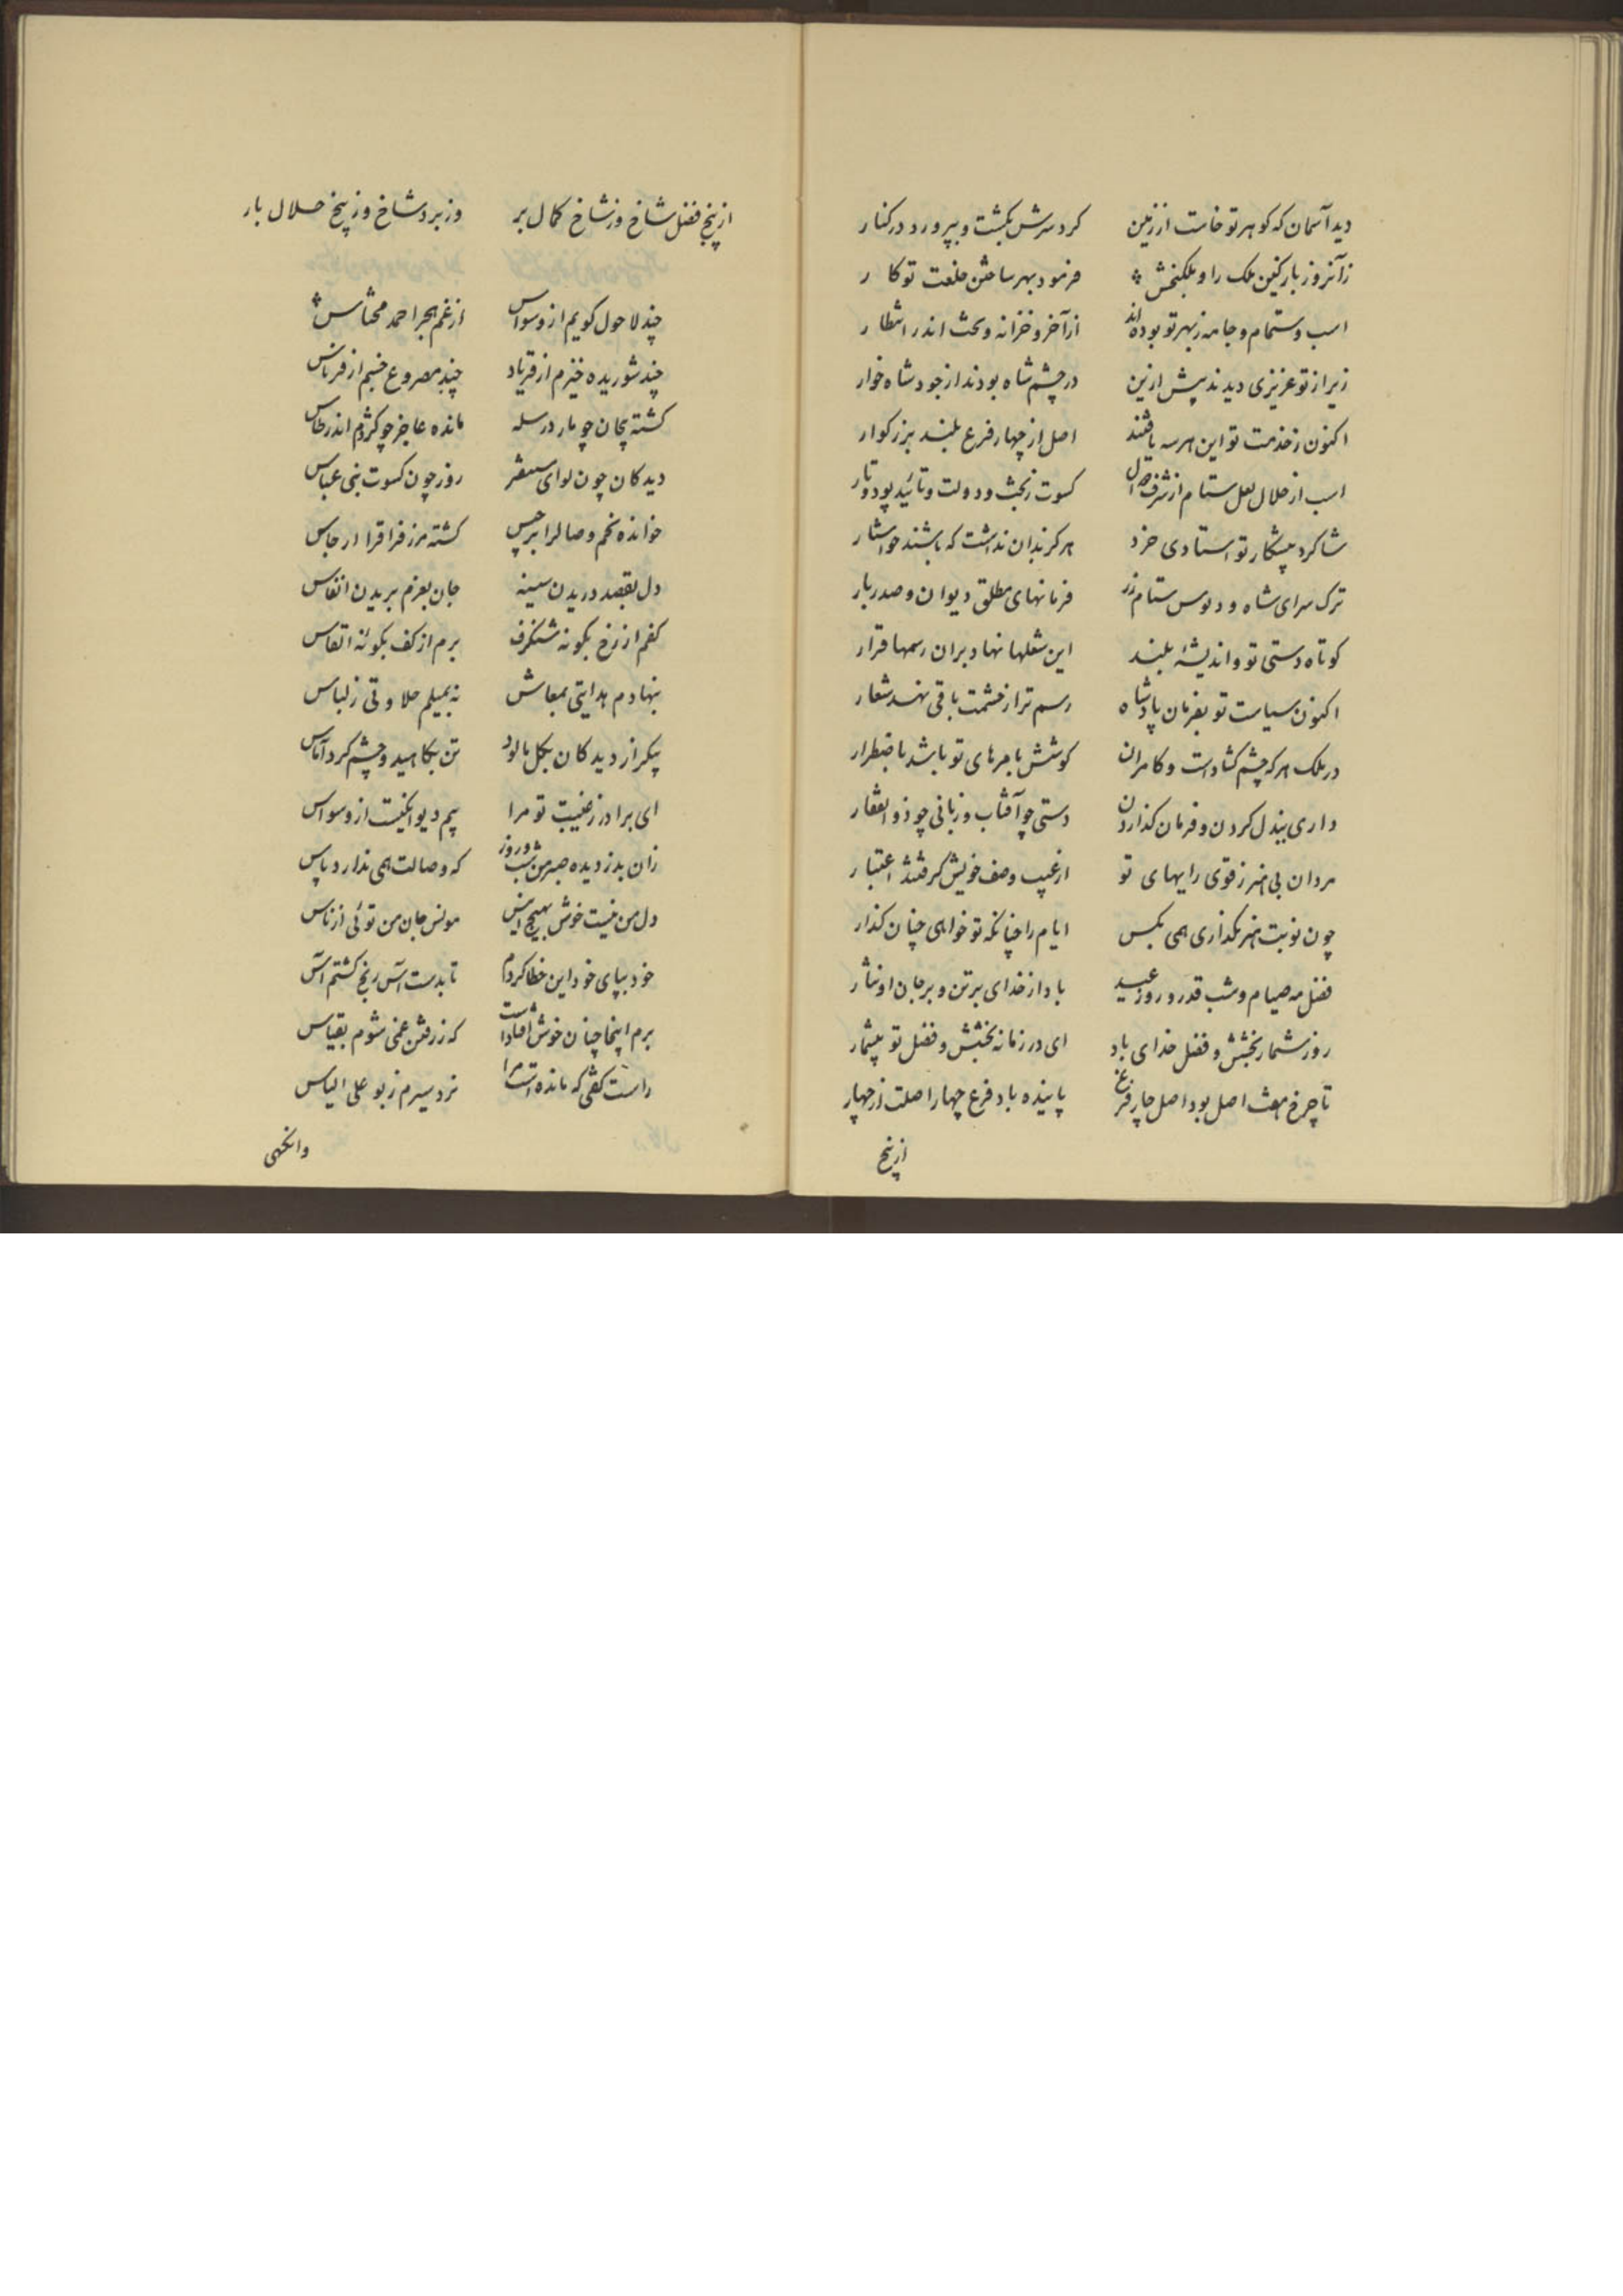 دید آسمان که کوهر تو خاست از زمین کرد سرش بکشت و بپرورد در کنار
زآنروز باز کین ملک را و ملکنجش فرمود بهر ساختن خلعت تو کار
اسب و ستام و جامه ز بهر تو بوده‌اند از آخر و خزانه و تخت اندر انتظار
زیرا ز تو عزیزی دیدند پیش ازین در چشم شاه بودند از جود شاه خوار
اکنون ز خدمت تو این هر سه یافتند اصل از چهار فرع بلند بزرکوار
اسب از هلال نعل ستام از شرف کسوت ز بخت و دولت و تائید پود و تار
شاکرد پیشکار تو استادی خرد هرکز بدان نداشت که باشند خواستار
ترک سرای شاه و دبوس ستام زر فرمانهای مطلق دیوان و صدر بار
کوتاه دستی تو و اندیشهٔ بلند این شغلها نهاد بران رسمها قرار
اکنون سیاست تو بفرمان پادشاه رسم ترا ز حشمت باقی نهد شعار
در ملک هر که چشم کشادست و کامران کوشش بامرهای تو باشد باضطرار
داری ببذل کردن و فرمان کذاردن دستی چو آفتاب و زبانی چو ذوالفقار
مردان بی هنر ز قوی رایهای تو از عیب وصف خویش کرفتند اعتبار
چون نوبت هنر نکذاری همی بکس ایام را چنانکه تو خواهی چنان کذار
فضل مه صیام و شب قدر و روز عید باد از خدای بر تن و بر جان او نثار
روز شمار بخشش و فضل خدای باد ای در زمانه بخشش و فضل تو بیشمار
تا چرخ هفت اصل بود اصل چار فرع پاینده باد فرع چهار اصلت از چهار
از بیخ
از بیخ فضل شاخ وز شاخ کمال بر وز برد شاخ وز بیخ حلال بار
چند لا حول کویم از وسواس از غم هجر احمد
چند شوریده خیزم از فریاد چند مصروع خسبم از فرناس
کشته پیچان چو مار در سله مانده عاجز چو کژدم اندر طاس
دیدکان چون لوای روز چون کسوت بنی عباس
خوانده نخم وصال را برجیس کشته مرز فراق را
دل بقصد دریدن سینه جان بعزم بریدن انفاس
کفم از رخ بکونه شنکرف برم از کف بکونه انقاس
بنهادم هدایتی بمعاش نه بمیلم حلاوتی ز لباس
پیکر از دیدکان بکل بالود تن بکاهید و چشم کرد آماس
ای برادر ز غیبت تو مرا بیم دیوانکیست از وسواس
زان بدزدیده صبر من شب و روز که وصالت همی ندارد پاس
دل من نیست خوش بهیچ انیس مونس جان من توئی از ناس
خود بپای خود این خطا کردم تا بدست آس رنج کشتم آس
برم اینجا چنان خوش افتادست که ز رفتن غمی شوم بقیاس
راست کفتی که مانده است مرا نزد سیرم ز بو علی الیاس
وانکهی